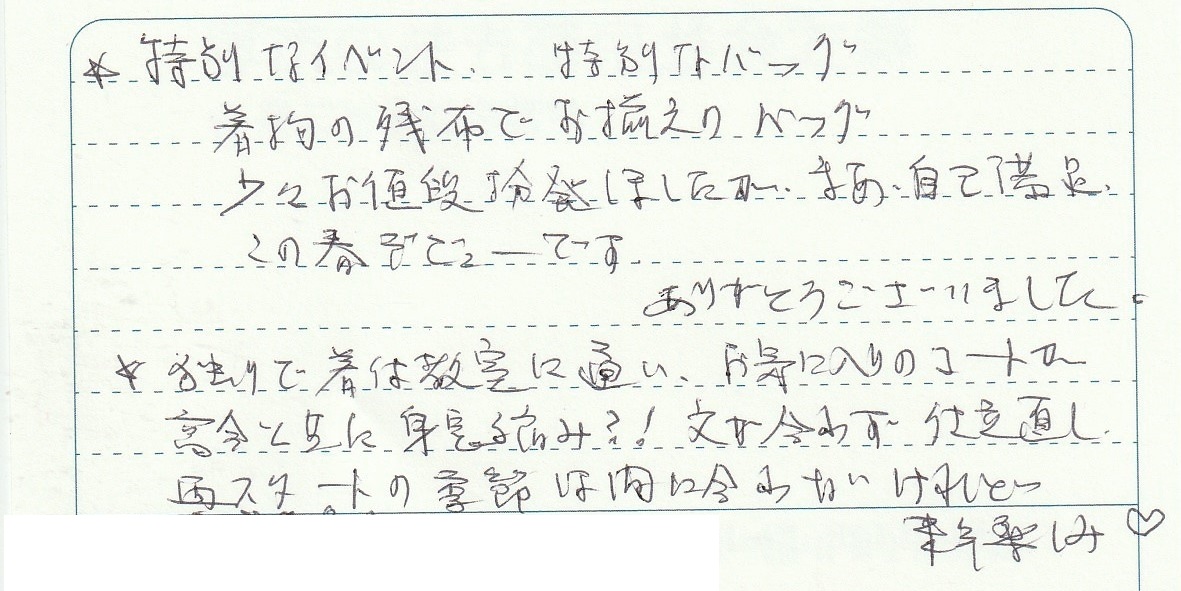 * 特別なイベント、特別なバッグ
着物の残布でお揃えのバッグ
少々お値段奮発しましたが、まあ、自己満足、
この春デビューです。
ありがとうございました。
* 独りで着付教室に通い、お気に入りのコートが
高令と共に身長縮み?! 丈が合わず仕立直し、
再スタートの季節は間に合わないけれど
来年楽しみ♡